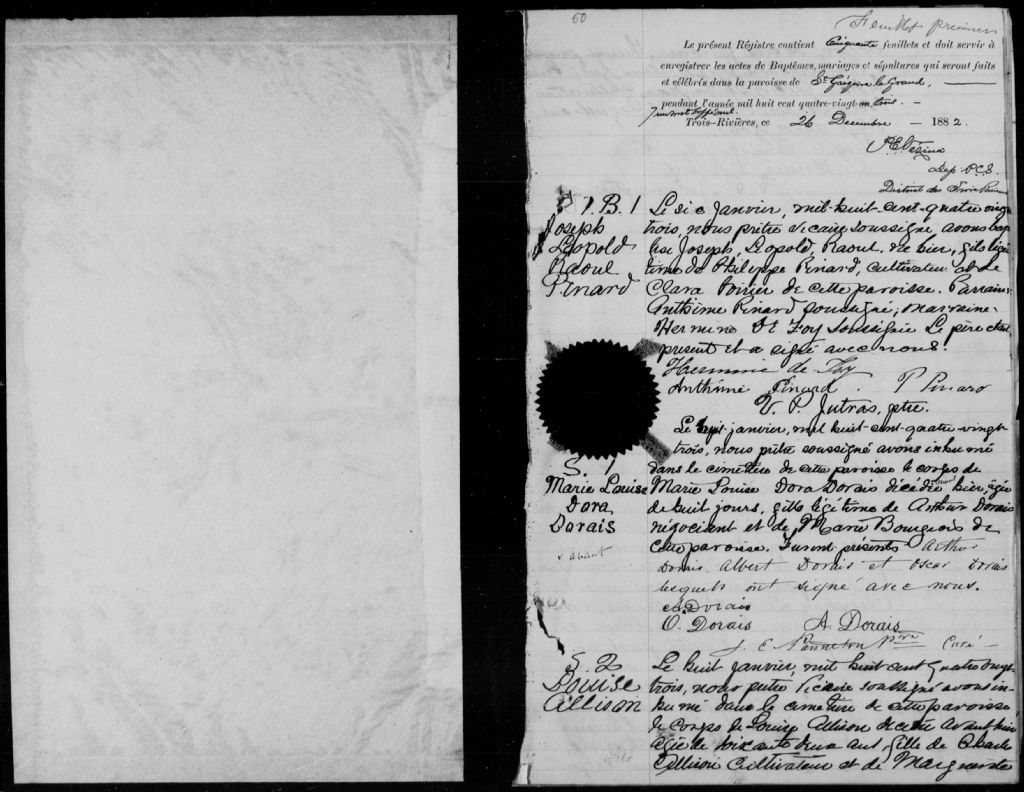 60
Feuillet premier
Le présent Régistre contient Cinquante feuillets et doit servir à
enregistrer les actes de Baptêmes, mariages et sépultures qui seront faits
et célébrés dans la paroisse de St Grégoire le Grand,
pendant l'année mil huit cent quatre-vingt-trois.
Trois-Rivières, ce 26 Decembre 1882.
Dep P.C.S.
District des Trois Rivières
B. 1
Joseph
Léopold
Raoul
Pinard
Le six janvier, mil-huit-cent-quatre vingt
trois, nous prêtre vicaire soussigné, avons bap
tisé Joseph, Léopold, Raoul, né hier, fils légi
time de Philippe Pinard, cultivateur et de
Clara Poirier de cette paroisse. Parrain
Anthime Pinard soussigné; marraine
Hermine De Foy soussignée Le père était
present et a signé avec nous.
Hermine de Foy
Anthime Pinard. P Pinard
V. P. Jutras, ptre.
S. 1
Marie Louise
Dora
Dorais
Le huit janvier, mil huit-cent-quatre-vingt-
trois, nous prêtre soussigné avons inhumé
dans le cimetière de cette paroisse le corps de
Marie Louise Dora Dorais décédée hier, agée
de huit jours, fille légitime de Arthur Dorais
négociant et de Marie Bourgeois de
cette paroisse. Furent présents Arthur
Dorais, Albert Dorais et Oscar Dorais
lesquels ont signé avec nous.
A. Dorais
O. Dorais A. Dorais
J. E. Panneton Ptre Curé
S. 2
Louise
Allison
Le huit janvier, mil huit cent quatre vingt
trois, nous prêtre Vicaire soussigné avons in-
humé dans le cimetière de cette paroisse
le corps de Louise Allison décédée avant hier
agée de soixante deux ans, fille de Charles
Allison Cultivateur et de Marguerite